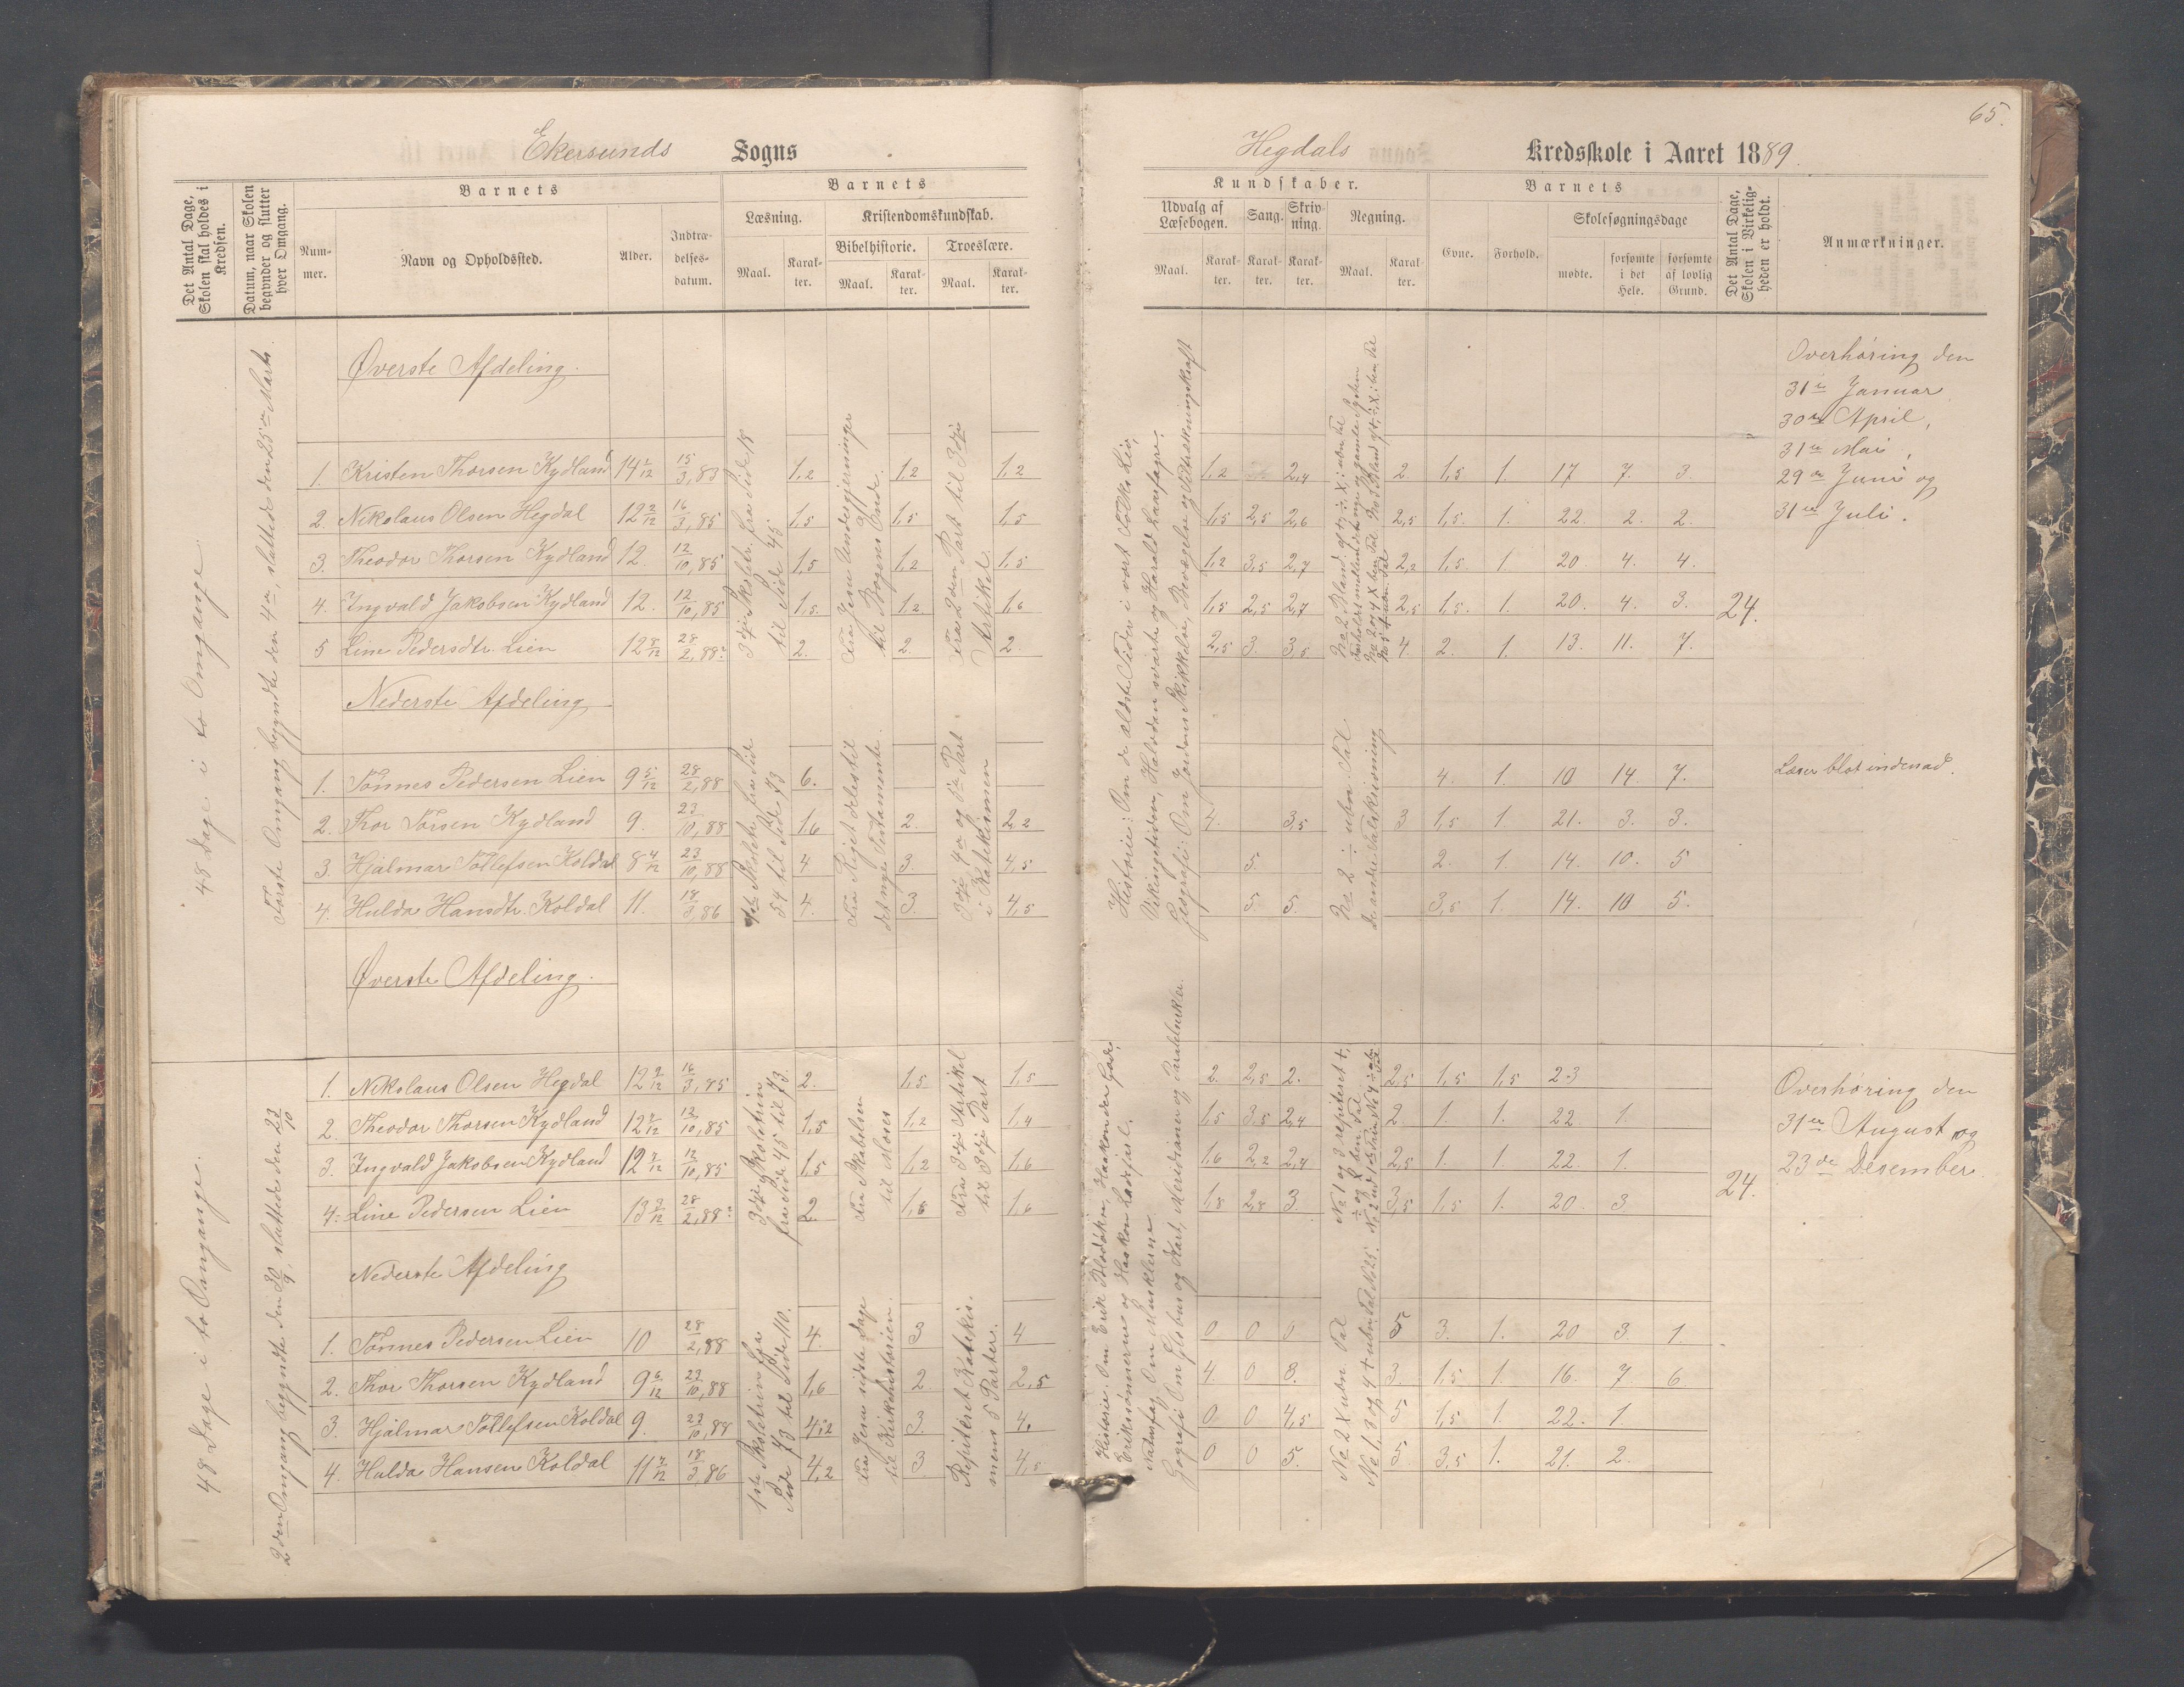 65.
Ekersunds Sogns
Hegdals Kredsskole i Aaret 1889.
Det Antal Dage, Skolen skal holdes i Kredsen.
Datum, naar Skolen begynder og slutter hver Omgang.
Barnets
Nummer.
Navn og Opholdssted.
Alder.
Indtrædelsesdatum.
Barnets
Læsning.
Maal. Karakter.
Kristendomskundskab.
Bibelhistorie.
Maal. Karakter.
Troeslære.
Maal. Karakter.
Kundskaber.
Udvalg af Læsebogen.
Maal. Karakter.
Sang.
Karakter.
Skrivning.
Karakter.
Regning.
Maal. Karakter.
Barnets
Evne. Forhold.
Skolesøgningsdage
mødte. forsømte i det Hele. forsømte af lovlig Grund.
Det Antal Dage, Skolen i Virkeligheden er holdt.
Anmærkninger.
48 Dage i to Omgange.
Første Omgang begyndte den 4de, sluttede den 25de Marts.
Øverste Afdeling.
3dje Skoletr. fra Side 18
til Side 45
Fra Jesu Undergjerninger
til Bogens Ende.
Fra 2den Part til 3dje
Artikel.
Historie: Om de ældste Tider i vort Folks Liv,
Vikingetiden, Halvdan svarte og Harald Haarfagre.
Geografi: Om Jordens Skikkelse, Bevægelse og Tiltrækningskraft
Overhøring den
31te Januar
30te April,
31te Mai,
29de Juni og
31te Juli.
1. Kristen Thorsen Kydland 14 2/12 15/3,83 1,2 1,2 1,2 1,2 2,4 2 1,5 1. 17 7. 3.
2. Nikolaus Olsen Hegdal 12 2/12 16/3,85 1,5 1,5 1,5 1,5 2,5 2,6 2,5 1,5. 1. 22. 2. 2.
3. Theodor Thorsen Kydland 12. 12/10,85 1,5 1,2 1,5 1,2 3,5 2,7 2,2 1,5. 1. 20 4. 4.
4. Ingvald Jakobsen Kydland 12. 12/10,85 1,5. 1,2 1,6 1,5 2,5 2,7 2,5 1,5. 1. 20. 4. 3. 24.
5 Line Pedersdtr. Lien 12 8/12 28/2,88 2. 2. 2. 2,5 3. 3,5 4. 2. 1. 13. 11. 7.
Nederste Afdeling
1ste Skoletr. fra Side
54 til Side 73
Fra Riget deles til
det nye Testamente.
3dje 4de og 5te Part
i Katekismen
No 2 ÷ ubn. Tal
1. Tønnes Pedersen Lien 9 5/12 28/2,88 6. 4. 1. 10 14. 7. Læser blot indenad.
2. Thor Torsen Kydland 9. 23/10,88 1,6 2. 2,2 4. 3,5 3 1,5 1. 21. 3. 3.
3. Hjalmar Tollefsen Koldal 8 4/12 23/10,88 4 3. 4,5 5. 2. 1. 14. 10. 5
4. Hulda Hansdtr. Koldal 11. 18/3,86 4. 3. 4,5 5. 5. 3,5 1. 14. 10 5.
48 Dage i to Omgange.
2den Omgang begyndte den 30/9, sluttede den 23/10
Øverste Afdeling.
3dje Skoletrin
fra Side 45 til 73.
Fra Skabelsen
til Moses
Fra 3dje Artikel
til 3dje Part
Historie: Om Erik Blodøkse, Haakon den Gode,
Eriksønnerne og Haakon Ladejarl.
Naturfag Om Musklerne
Geografi Om Globus og Kart, Meridianer og Paralelsirkler.
1. Nikolaus Olsen Hegdal 12 9/12 16/3,85 2. 1,5. 1,5 2. 2,5 2. 2,5 1,5 1,5 23
2. Theodor Thorsen Kydland 12 7/12 12/10,85 1,5 1,2 1,4 1,5 3,5 2,4 2. 1. 1. 22 1.
3. Ingvald Jakobsen Kydland 12 7/12 12/10,85 1,5 1,2 1,6 1,6 2,2 2,4 2,5 1. 1. 22. 1.
4. Line Pedersen Lien 13 3/12 28/2,88 2. 1,6 1,6 1,8 2,8 3. 3,5 1,5 1. 20. 3. 24.
Overhøring den
31te August og
23de Desember
Nederste Afdeling
1ste Skoletrin fra
Side 73 til Side 10.
Fra Jesu sidste Dage
til Kirkehistorien.
Repiteret Katekis-
mens 5 Parter.
No 2 X ubn. Tal
1. Tønnes Pedersen Lien 10 28/2,88 4. 3 4 0 0 0 5 3. 1. 20 3. 1.
2. Thor Thorsen Kydland 9 6/12 23/10,88 1,6 2. 2,5 4. 0 3. 3. 1,5 1. 16. 7 6
3. Hjalmar Tollefsen Koldal 9. 23/10,88 4,2 3. 4. 0 0 4,5 5 1,5 1. 22. 1.
4. Hulda Hansen Koldal 11 7/12 18/3,86 4,2 3 4,5 0 0 5. 5. 3,5 1. 21. 2.